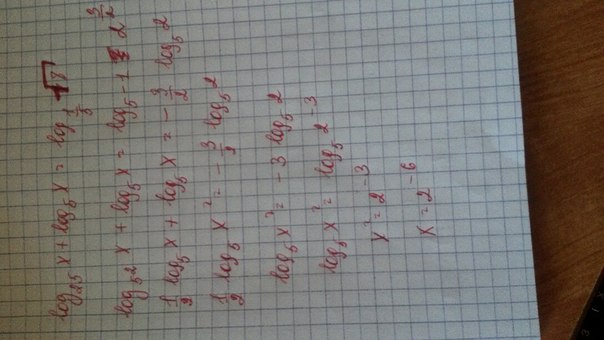 log₂₅ x + log₅ x = log_{1/5} √8
log_{5²} x + log₅ x = log_{5^{-1}} 2^{3/2}
1/2 log₅ x + log₅ x = - 3/2 log₅ 2
1/2 log₅ x² = - 3/2 log₅ 2
log₅ x² = - 3 log₅ 2
log₅ x² = log₅ 2^{-3}
x² = 2^{-3}
x = 2^{-6}